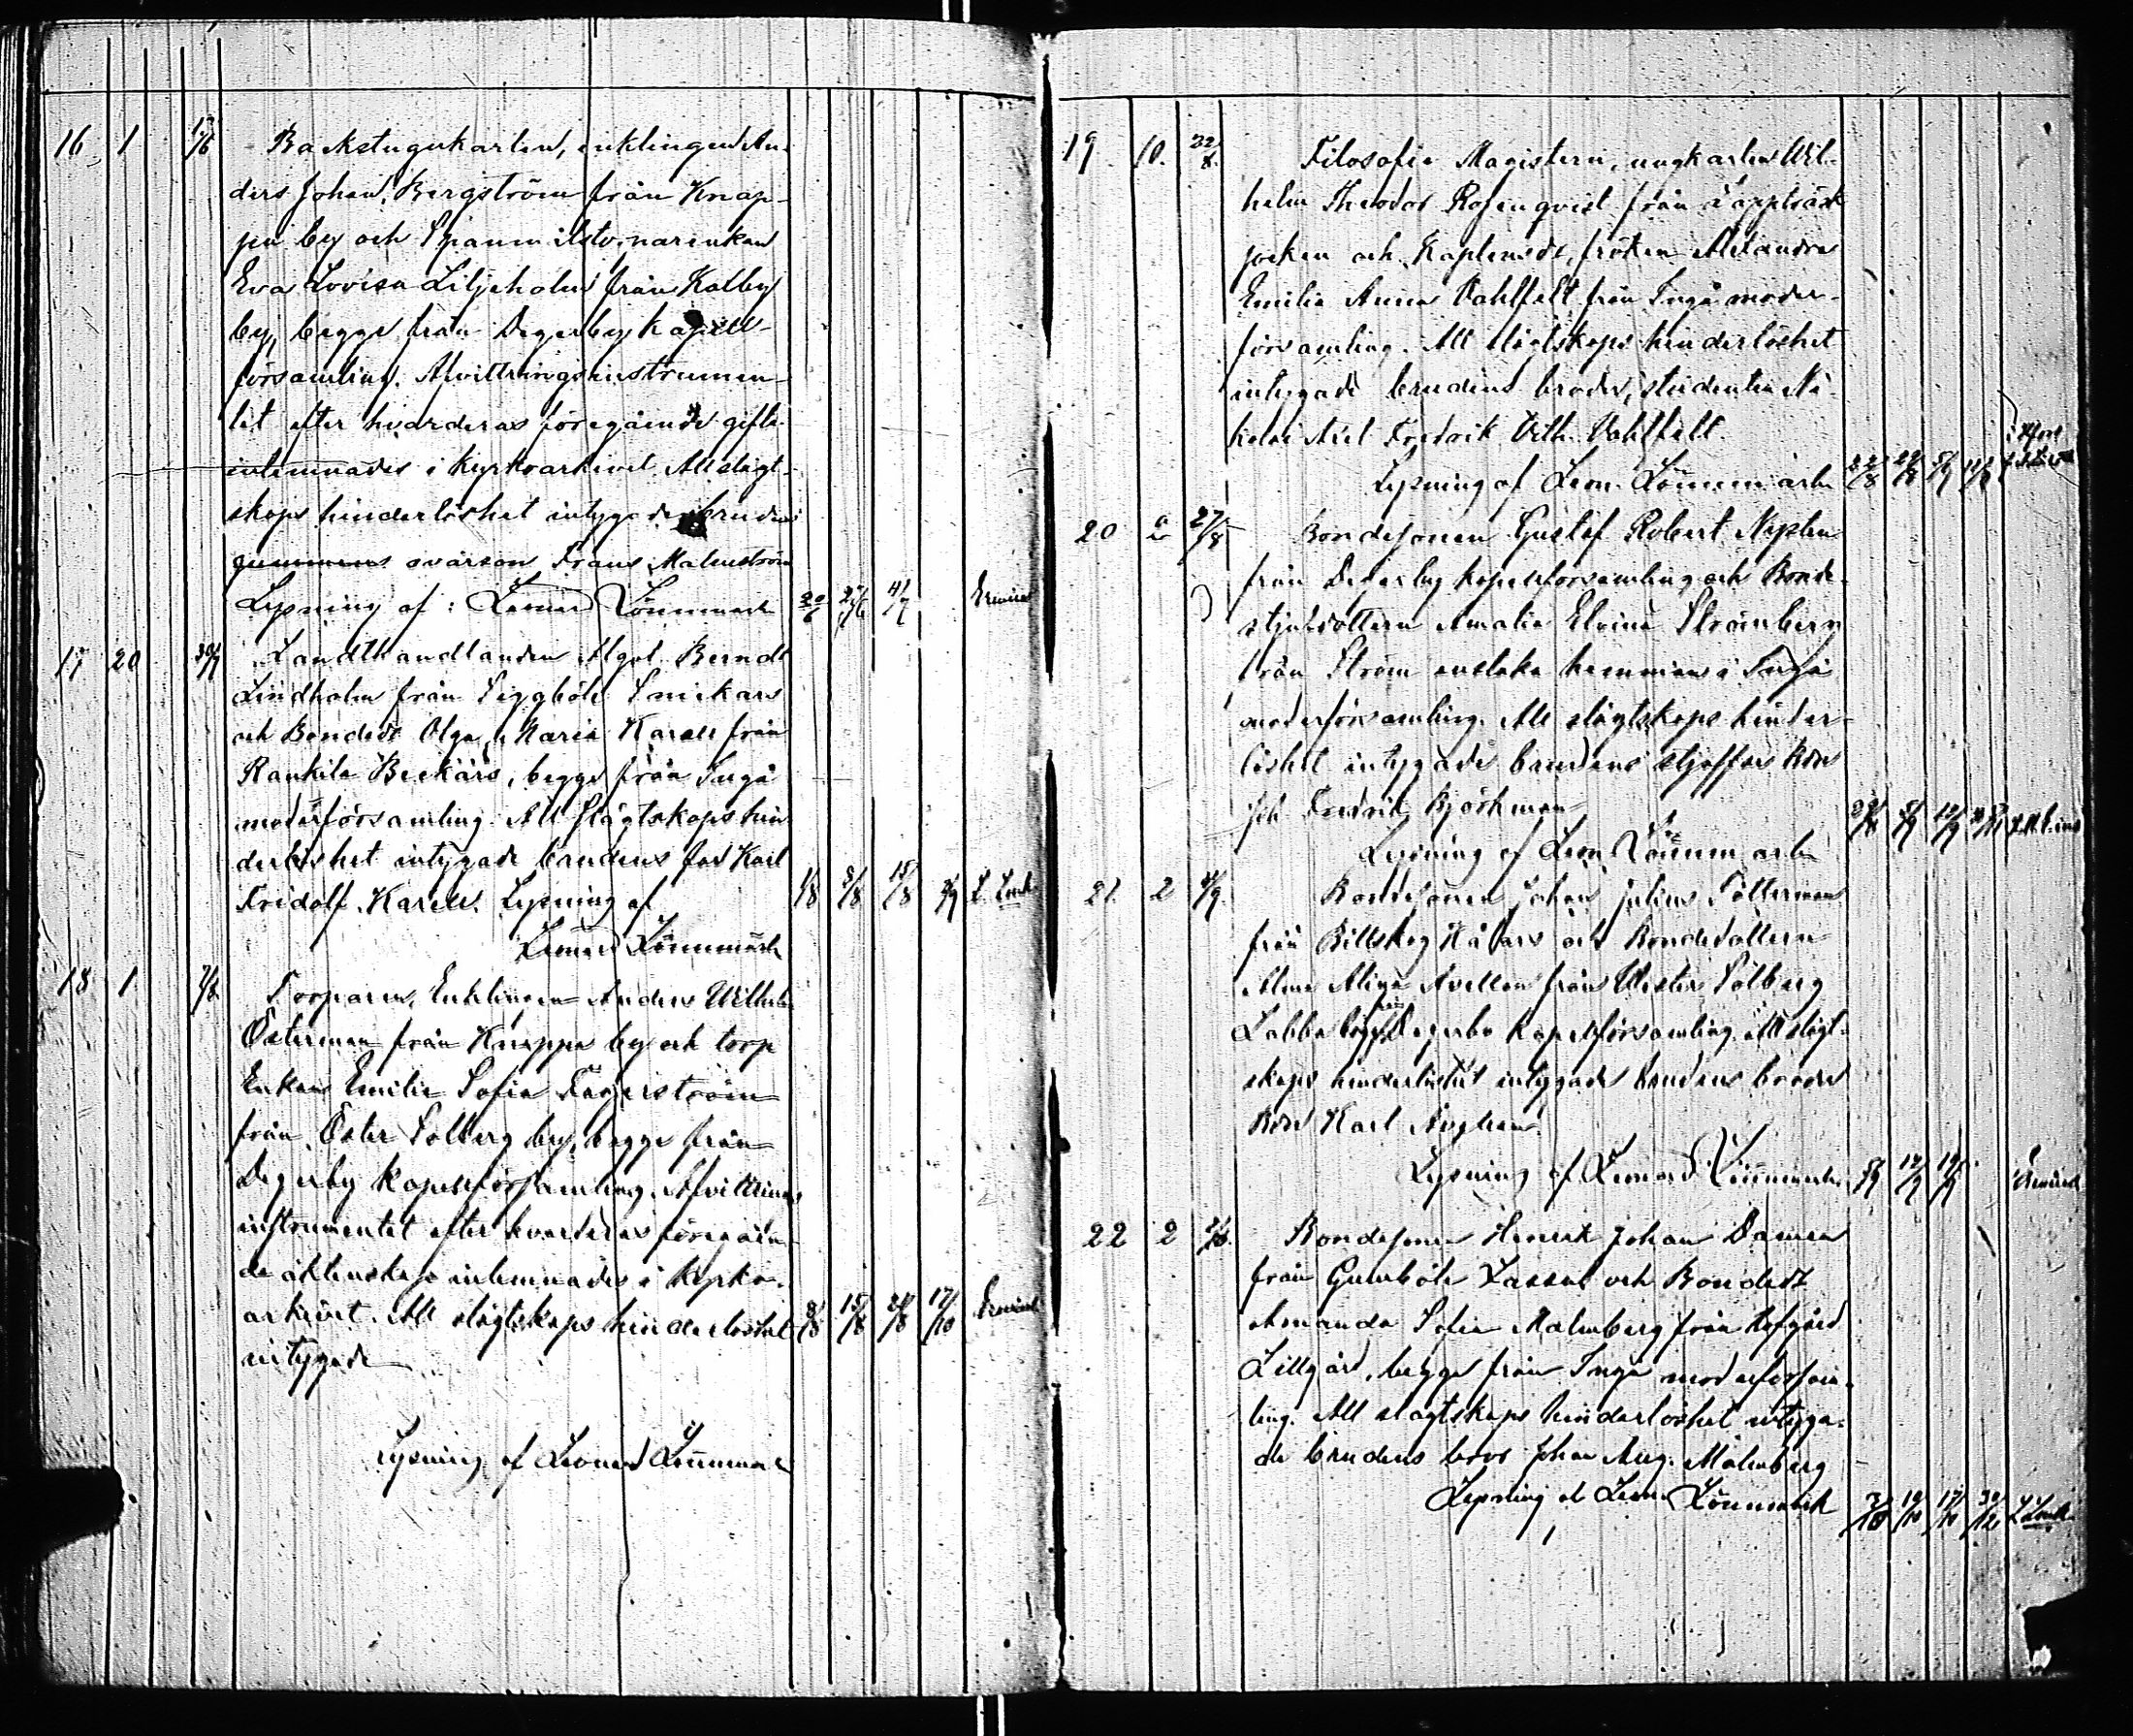 16 1 17/6 Backstugukarlen, enklingen An-
ders Johan Bergström från Knap-
pen by och enkan
Eva Lovisa Liljeholm från Kalby
by, begge från Degerby kapell-
församling. Afvittringsinstrumen-
tet efter hvarderas föregående gifte
inlemnades i kyrkoarkivet. All slägt-
skaps hinderlöshet intygade brud
gummens svärson Frans Malmström
Lysning af: Leonard Lönnmark 20/6 27/6 4/7
17 20 30/7 Landthandlanden Algot Berndt
Lindholm från Siggböle Snickars
och Bondedr Olga Maria Karell från
Rankila Beckars, begge från Ingå
moderförsamling. All slägtskaps hin-
derlöshet intygade brudens far Karl
Fridolf Karell. Lysning af 1/8 8/8 15/8
Leonard Lönnmark
18 1 7/8 Torparen, Enklingen Anders Wilhelm
Österman från Knappa by och torp
Enkan Emilia Sofia Fagerström
från Öster Solberg by, begge från
Degerby Kapellförsamling. Afvittrings
instrumentet efter hvarderas föregåen-
de äktenskap inlemnades i kyrko-
arkivet. All slägtskaps hinderlöshet 8/8 15/8 22/8 17/10
intygade
Lysning af Leonard Lönnmark
19 10. 22/8. Filosofie Magistern, ungkarlen Wil-
helm Theodor Rosenqvist från
socken och Kaptensdr, fröken Alexandra
Emilia Anna Vahlfelt från Ingå moder-
församling. All slägtskaps hinderlöshet
intygade brudens broder, studenten
Axel Fredrik Vilh. Vahlfelt.
Lysning af Leon. Lönnmark 22/8 29/8 5/9 12/9
20 27/8 Bondesonen Gustaf Robert Nyplen
från Degerby kapellförsamling och Bonde-
styfdottern Amalia Elvina Strömberg
från Ström enstaka hemman i Ingå
moderförsamling. All slägtskaps hinder-
löshet intygade brudens styffar bdn
Joh Fredrik Björkman
Lysning af Leon Lönnmark 29/8 5/9 12/9
21. 2 4/9. Bondesonen Johan Julius Sölterman
från Billskog Håkars och Bondedottern
Alma Alina Avellan från Wester Solberg
Labba begge Degerby Kapellförsamling. All slägt-
skaps hinderlöshet intygade brudens broder
Bdn Karl Avellan
Lysning af Leonard Lönnmark 5/9 12/9 19/9
22 2 2/10. Bondesonen Henrik Johan Damen
från Gumböle Lassas och Bondedr
Amanda Sofia Malmberg från Hofgård
Lillgård, begge från Ingå moderförsam-
ling. All slägtskaps hinderlöshet intyga-
de brudens bror Johan Aug. Malmberg
Lysning af Leon Lönnmark 3/10 10/10 17/10